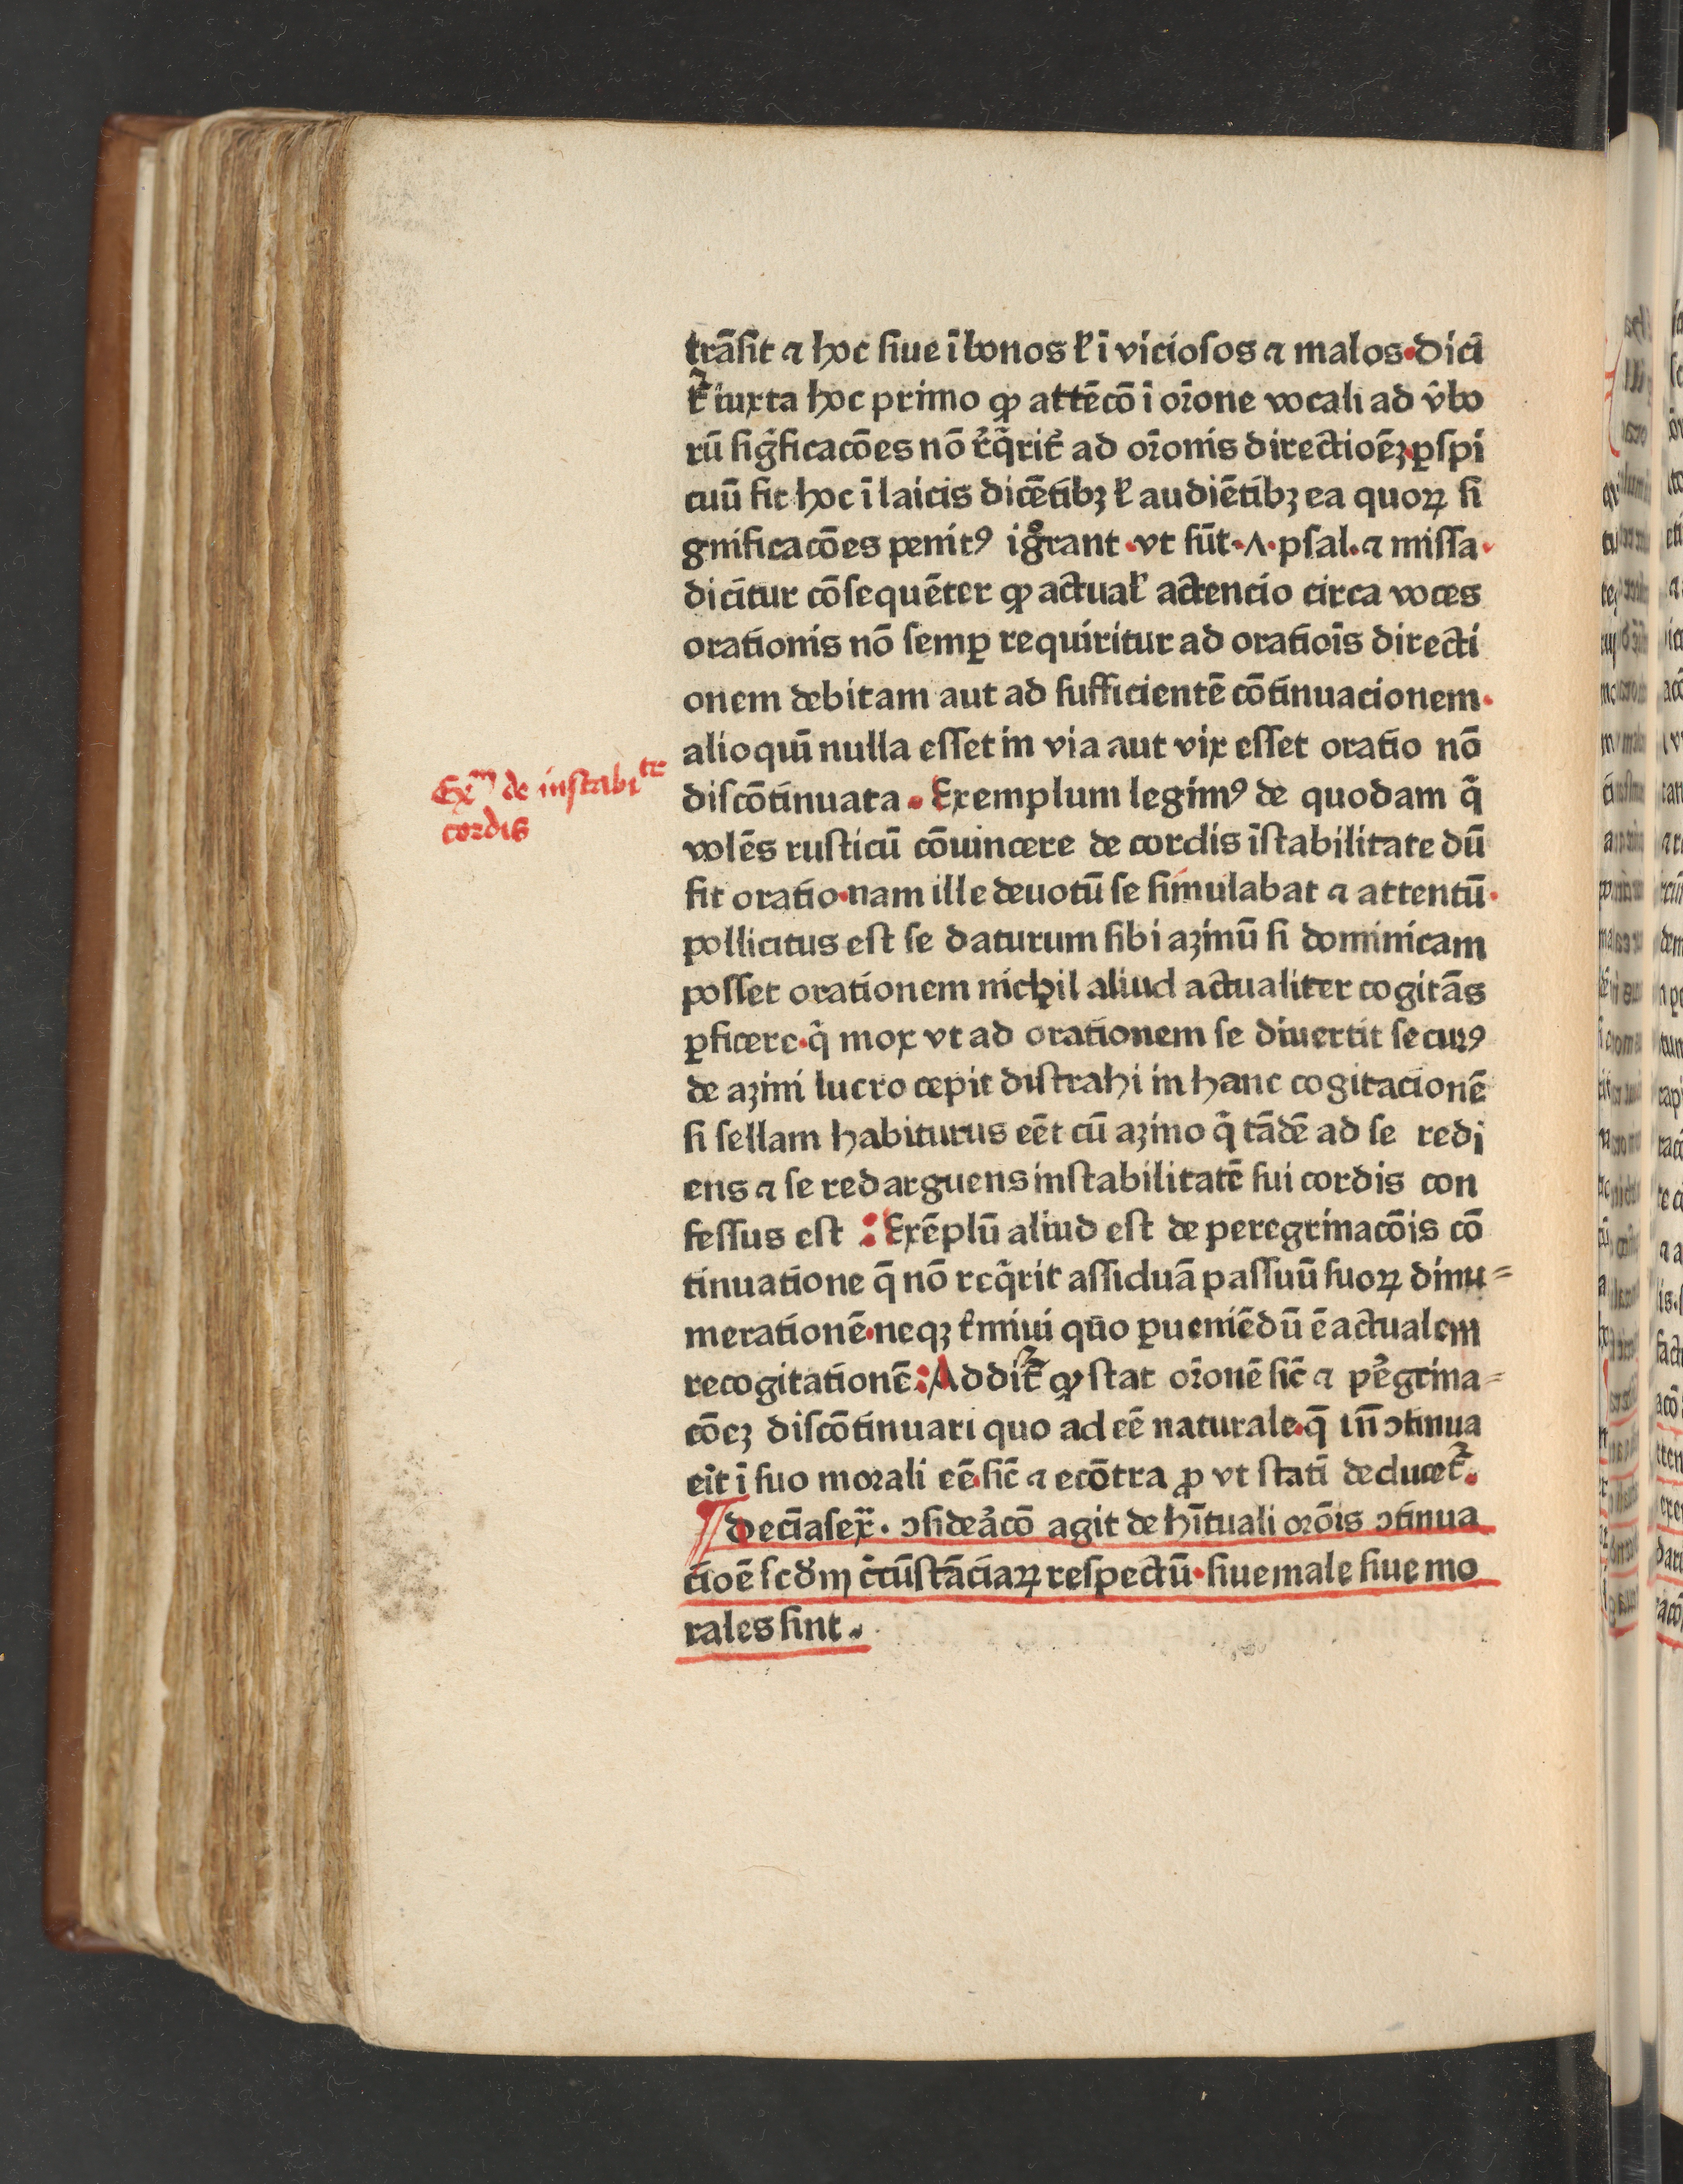 trãſit ⁊ hoc ſiue ĩ bonos ł ĩ vicioſos ⁊ malos·dicĩ
tᷣ iuxta hoc primo ꝙ attẽcõ ĩ oɼ̃one vocali ad v̾bo
rũ ſigᷓficacões nõ r̾q̃rit᷑ ad oɼ̃onis directioẽꝫ·ꝑſpi
cuũ fit hoc ĩ laicis dicẽtibꝫ ł audiẽtibꝫ ea quoꝝ ſi
gnificacões penitꝰ igͦrant·vt ſũt·Λ·pſal·⁊ miſſa·
dicĩtur cõſequẽter ꝙ actual̾ actencio circa voces
orationis nõ ſemꝑ requiritur ad oratiõis directi
onem debitam aut ad ſufficientẽ cõtinuacionem·
alioquĩ nulla eſſet in via aut vix eſſet oratio nõ
Ex^m de inſtabi^te
cordis
diſcõtinuata· Exemplum legimꝰ de quodam q̃
volẽs ruſticũ cõuincere de cordis ĩſtabilitate dũ
fit oratio·nam ille deuotũ ſe ſimulabat ⁊ attentũ·
pollicitus eſt ſe daturum ſibi aʒinũ ſi dominicam
poſſet orationem nichil aliud actualiter cogitãs
ꝑficere·q̃ mox vt ad orationem ſe diuertit ſecurꝰ
de aʒini lucro cepit diſtrahi in hanc cogitacionẽ
ſi ſellam habiturus eẽt cũ aʒino q̃ tãdẽ ad ſe redi
ens ⁊ ſe redarguens inſtabilitatẽ ſui cordis con
feſſus eſt : Exẽplũ aliud eſt de peregrinacõis cõ
tinuatione q̃ nõ req̃rit aſſiduã paſſuũ ſuoꝝ dinu=
merationẽ·neqꝫ t̾mini quo ꝑueniẽdũ ẽ actualem
recogitationẽ: Addit᷑ ꝙ ſtat oɼ̃onẽ ſic̃ ⁊ pe̾grina=
cõeꝫ diſcõtinuari quo ad eẽ naturale·q̃ in̅ ↄtinua
eit̾ ĩ ſuo morali eẽ·ſic̃ ⁊ ecõtra ꝓ vt ſtatĩ deducet᷑.
¶ deciaſex̃· ↄſidea̾cõ agit de hĩtuali oɼõis ↄtinua
cioẽ ſcd̾m c̾cũſtãciaꝝ reſpectũ·ſiue male ſiue mo
rales ſint.